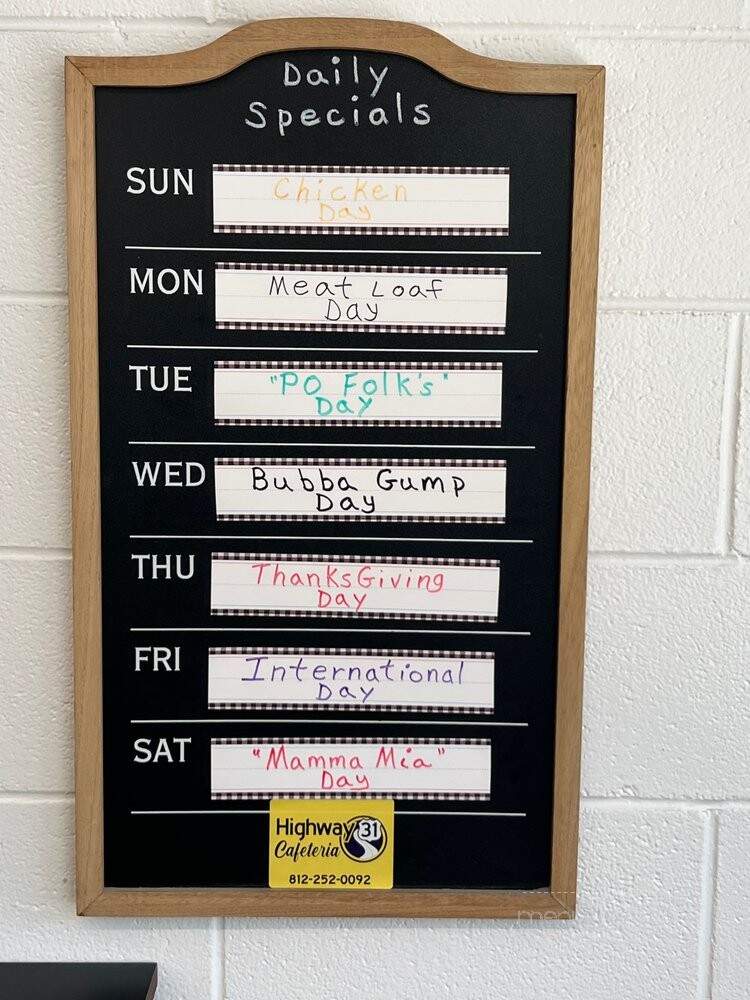 Daily
Specials
SUN
Chicken
Day
MON
Meat Loaf
Day
TUE
"PO Folk's"
Day
WED
Bubba Gump
Day
THU
ThanksGiving
Day
FRI
International
Day
SAT
"Mamma Mia"
Day
Highway 31
Cafeteria
812-252-0092